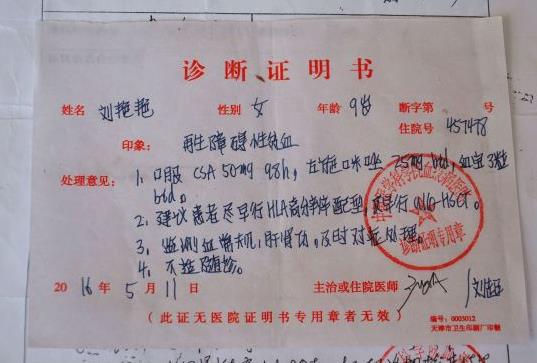 诊断证明书
姓名 刘艳艳 性别 女 年龄 9岁 断字第 号
住院号 457478
印象： 再生障碍性贫血
处理意见： 1、口服 CSA 50mg q8h，左旋咪唑 25mg bid，血宝3粒
bid。
2、建议患者尽早行HLA高分辨配型，尽早行 allo-HSCT。
3、监测血常规，肝肾功，及时对症处理。
4、不适随诊。
2016年5月11日 主治或住院医师
（此证无医院证明书专用章者无效）
编号：0003012
天津市卫生印刷厂印制
诊断证明专用章